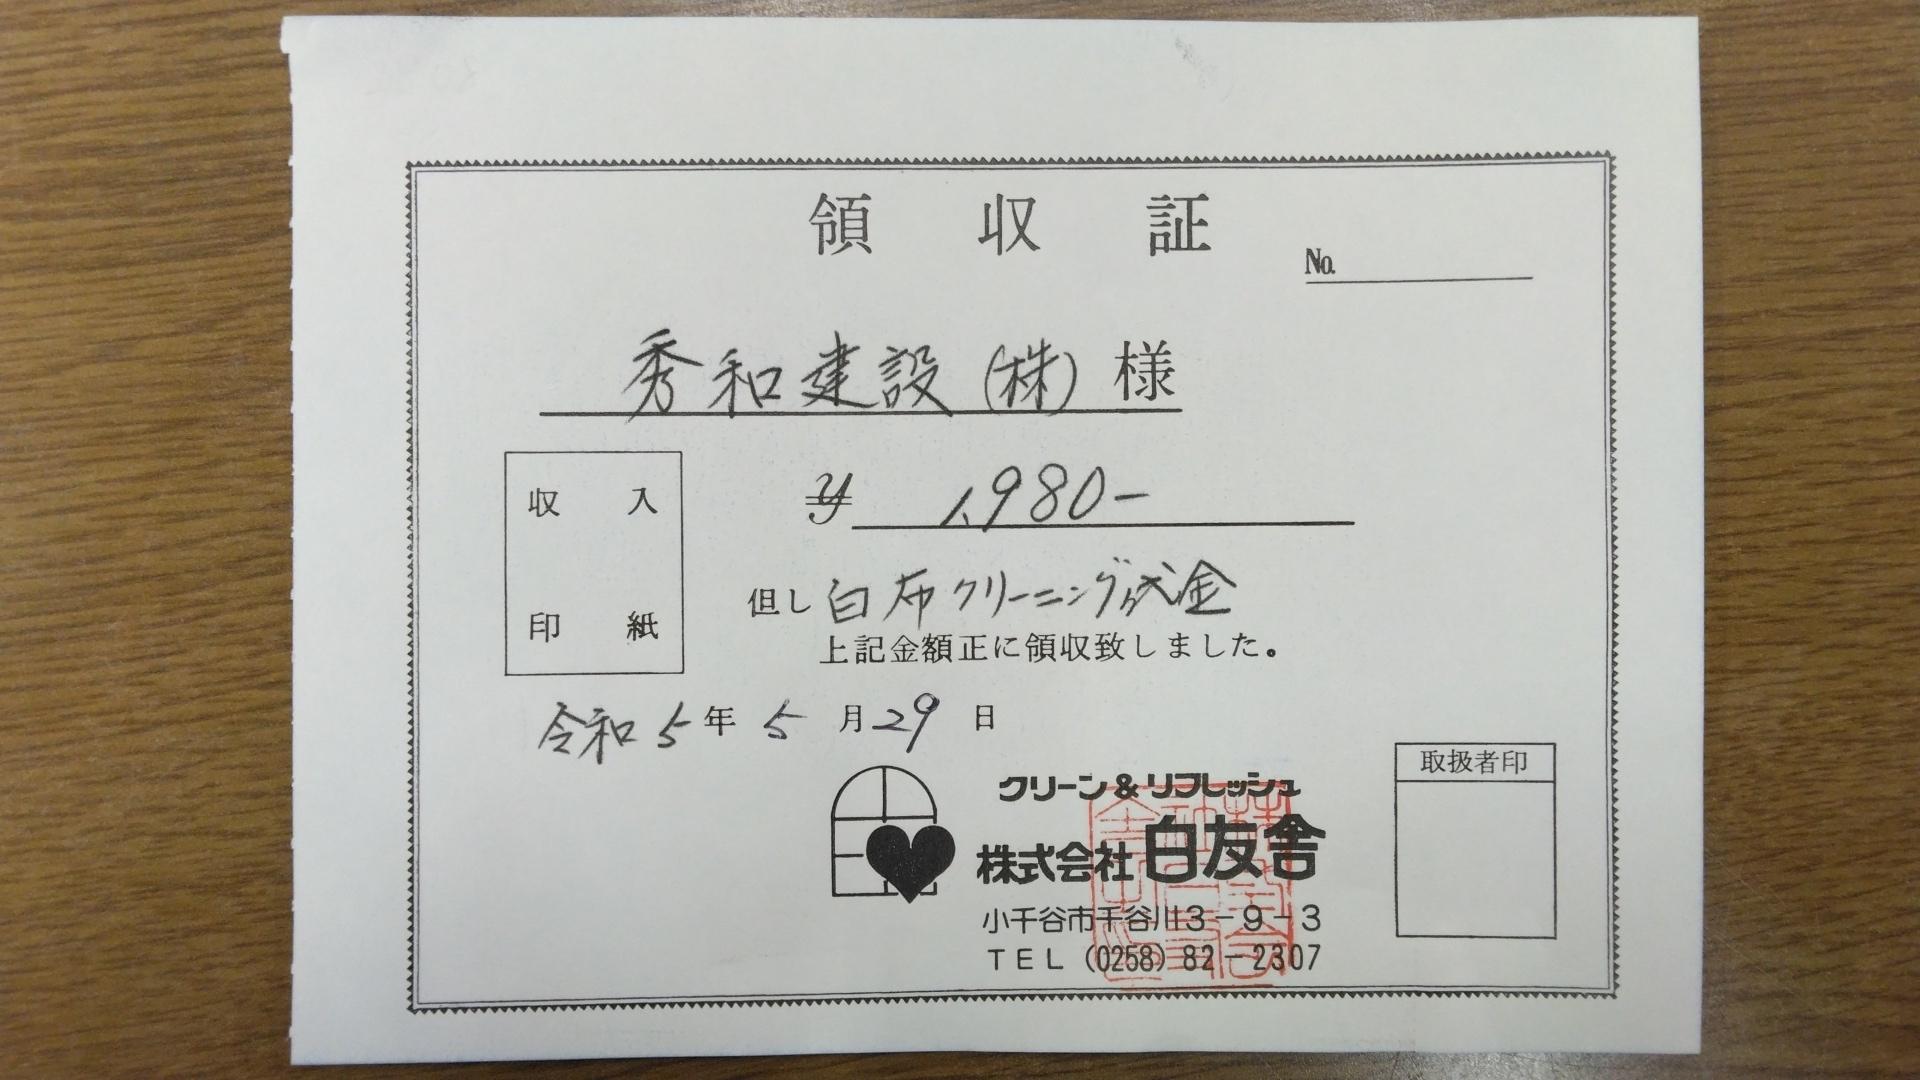 領収証
No.
秀和建設(株)様
¥ 1,980-
収入
印紙
但し 白布クリーニング代金
上記金額正に領収致しました。
令和5年5月29日
取扱者印
クリーン&リフレッシュ
株式会社白友舎
小千谷市千谷川3-9-3
TEL (0258) 82-2307